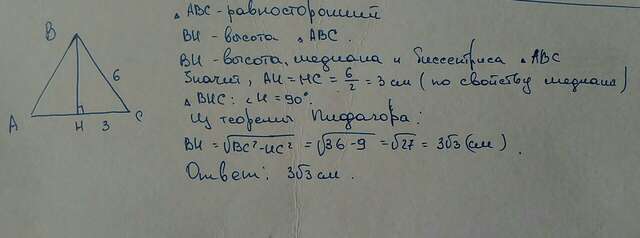 △ABC - равносторонний
BH - высота △ABC.
BH - высота, медиана и биссектриса △ABC
Значит, AH = HC = 6/2 = 3 см (по свойству медианы)
△BHC: ∠H = 90°.
Из теоремы Пифагора:
BH = √BC²-HC² = √36-9 = √27 = 3√3 (см).
Ответ: 3√3 см.
B
6
A
H
3
C